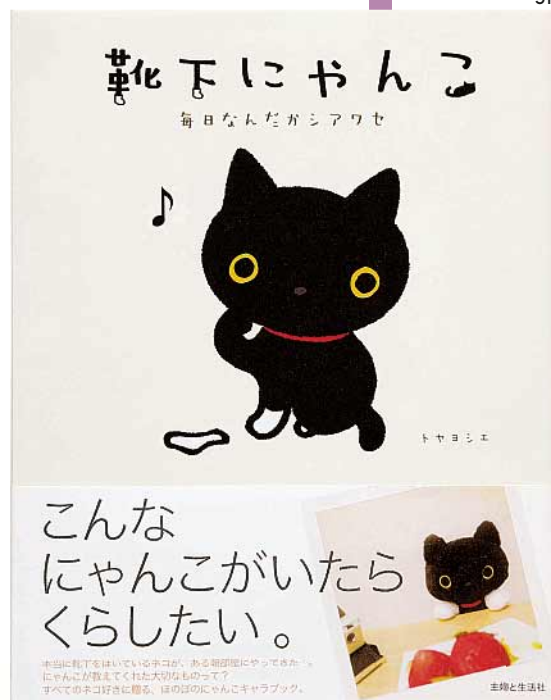 靴下にゃんこ
毎日なんだかシアワセ
トヤヨシエ
こんな
にゃんこがいたら
くらしたい。
本当に靴下をはいているネコが、ある朝部屋にやってきた…。
にゃんこが教えてくれた大切なものって?
すべてのネコ好きに贈る、ほのぼのにゃんこキャラブック。
主婦と生活社